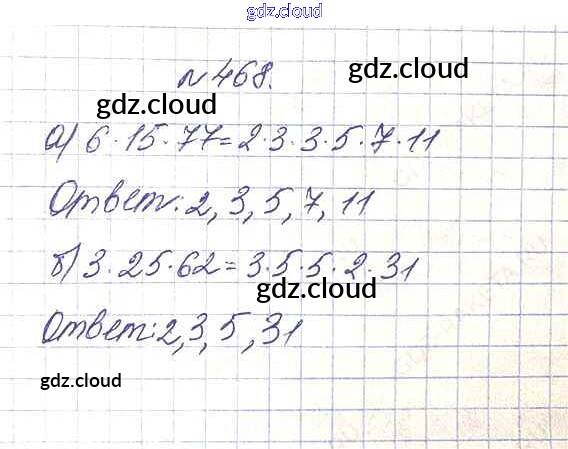 gdz.cloud
№ 468.
gdz.cloud
gdz.cloud
а) 6·15·77=2·3·3·5·7·11
Ответ: 2, 3, 5, 7, 11
б) 3·25·62=3·5·5·2·31
gdz.cloud
Ответ: 2, 3, 5, 31
gdz.cloud